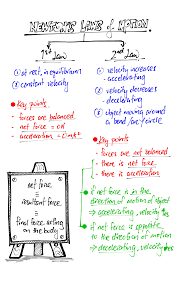 NEWTON'S LAWS OF MOTION
1st Law
① at rest, in equilibrium
② constant velocity
• Key points:
- forces are balanced
- net force = 0N
- acceleration = 0 m/s²
net force
=
resultant force
=
final force acting
on the body
2nd Law
① velocity increases
- accelerating
② velocity decreases
- decelerating
③ object moving around
a bend/arc/circle
• Key points:
- forces are not balanced
- there is net force
- there is acceleration
if net force is in the
direction of motion of object
⇒ accelerating, velocity ↑
if net force is opposite
to the direction of motion
⇒ decelerating, velocity ↓